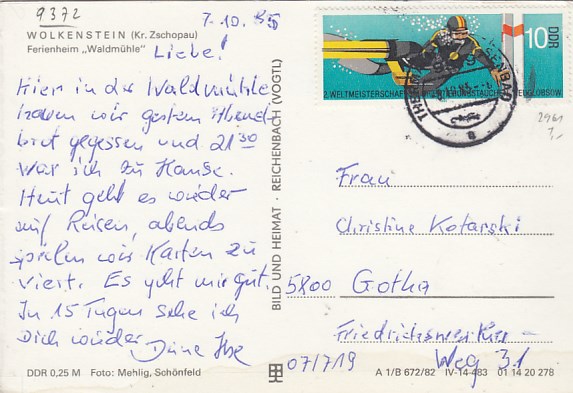 9372
7.10.85
WOLKENSTEIN (Kr. Zschopau)
Ferienheim „Waldmühle"
Liebe!
Hier in der Waldmühle
haben wir gestern Abend
brot gegessen und 21³⁰
war ich zu Hause.
Heut geht es wieder
auf Reisen, abends
spielen wir Karten zu
viert. Es geht mir gut.
In 15 Tagen sehe ich
Dich wieder
Deine
DDR 0,25 M Foto: Mehlig, Schönfeld
BILD UND HEIMAT · REICHENBACH (VOGTL)
DDR
10
2. WELTMEISTERSCHAFTEN
Frau
Christine Kotarski
5800 Gotha
Friedrichswerther-
Weg 31
07/719
A 1/B 672/82 IV-14-483 01 14 20 278